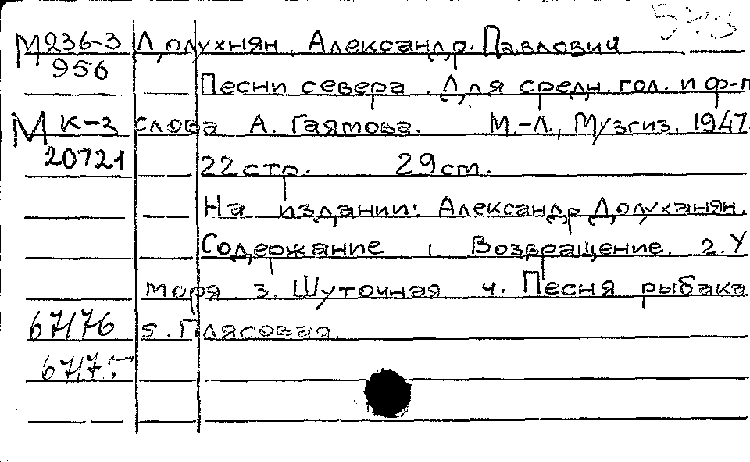 М 236-3 Долухнян, Александр Павлович
956
Песни севера. Для средн. гол. и ф-п
М К-3 слова А. Гаямова. М.-Л., Музгиз, 1947
20721 22 стр. 29 см.
На издании: Александр Долуханян.
Содержание 1 Возвращение. 2. У
моря 3. Шуточная 4. Песня рыбака
67176 5. Плясовая